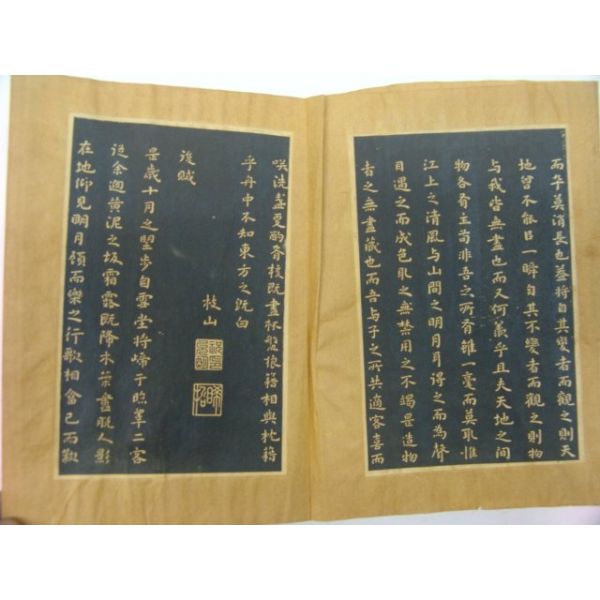 而卒莫消長也蓋將自其變者而觀之則天
地曾不能以一瞬自其不變者而觀之則物
与我皆無盡也而又何羨乎且夫天地之間
物各有主苟非吾之所有雖一毫而莫取惟
江上之清風与山間之明月耳得之而為聲
目遇之而成色取之無禁用之不竭是造物
者之無盡藏也而吾与子之所共適客喜而
咲洗盞更酌肴核既盡杯盤狼籍相與枕籍
乎舟中不知東方之既白
枝山
後賦
是歲十月之望步自雪堂將歸于臨皋二客
從余過黃泥之坂霜露既降木葉盡脫人影
在地仰見明月顧而樂之行歌相答已而歎